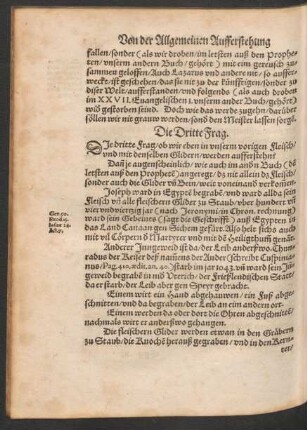 Von der Allgemeinen Aufferstehung
fallen/sonder (als wir droben/im letsten auß den Prophe-
ten/unserm andern Buch/gehört) mit ein gereusch zu-
sammen geloffen/Auch Lazarus und andere nit/so auffer-
weckt/ist geschehen/das sie nit zu der künfftigen/sonder zu
diser Welt/aufferstanden/und folgends (als auch droben
im XXVII. Euangelischen I. unserm ander Buch/gehört)
wid gestorben seind. Doch wie das werde zugehn/darüber
söllen wir nit grauw werden/sond den Meister lassen sorgē.
Die Dritte Frag.
Die dritte Frag/ob wir eben in unserm vorigen Fleisch/
und mit denselben Glidern/werden aufferstehn?
Dañ je augenscheinlich/wie auch im andn Buch (de
letsten auß den Propheten) angeregt/ds nit allein ds Fleisch/
sonder auch die Glider vñ Bein/weit voneinand verkomen.
Joseph ward in Egypte begrabē/und ward allda sein
Fleisch vñ alle fleischern Glider zu Staub/uber hundert vñ
vier und vierzig jar (nach Jeronymi in Chron. rechnung)
war sein Gebeine (sagt die Geschrifft) auß Egypten in
das Land Canaan gen Sichem gefürt. Also helt sichs auch
mit vil Cörpern d Martyrer und in de gleichen Sachen.
Anderer Jungweid ist da/der Leib anderswo. Chun-
radus der Keiser des nammens der Ander (schreibt Cuspinia-
nus/Pag. 410. ædit. an. 40.) starb im jar 1043. uñ ward sein Jun-
geweid begrabē in m Vereich der Frießlendischen Statt/
da er starb/der Leib aber gen Speyr gebracht.
Einem wirt ein Hand abgehauwen/ein Fuß abge-
schnitten/und da begraben/der Leib an einem andern ort.
Einem werden da oder dort die Ohren abgeschnitten/
nachmals wirt er anderswo gehangen.
Die fleischern Glider werden etwan in den Gräbern
zu Staub/die Knochē herauß gegraben/und in den Kern-
ter/